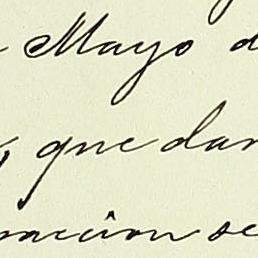 Mayo d
que dan
nacion se